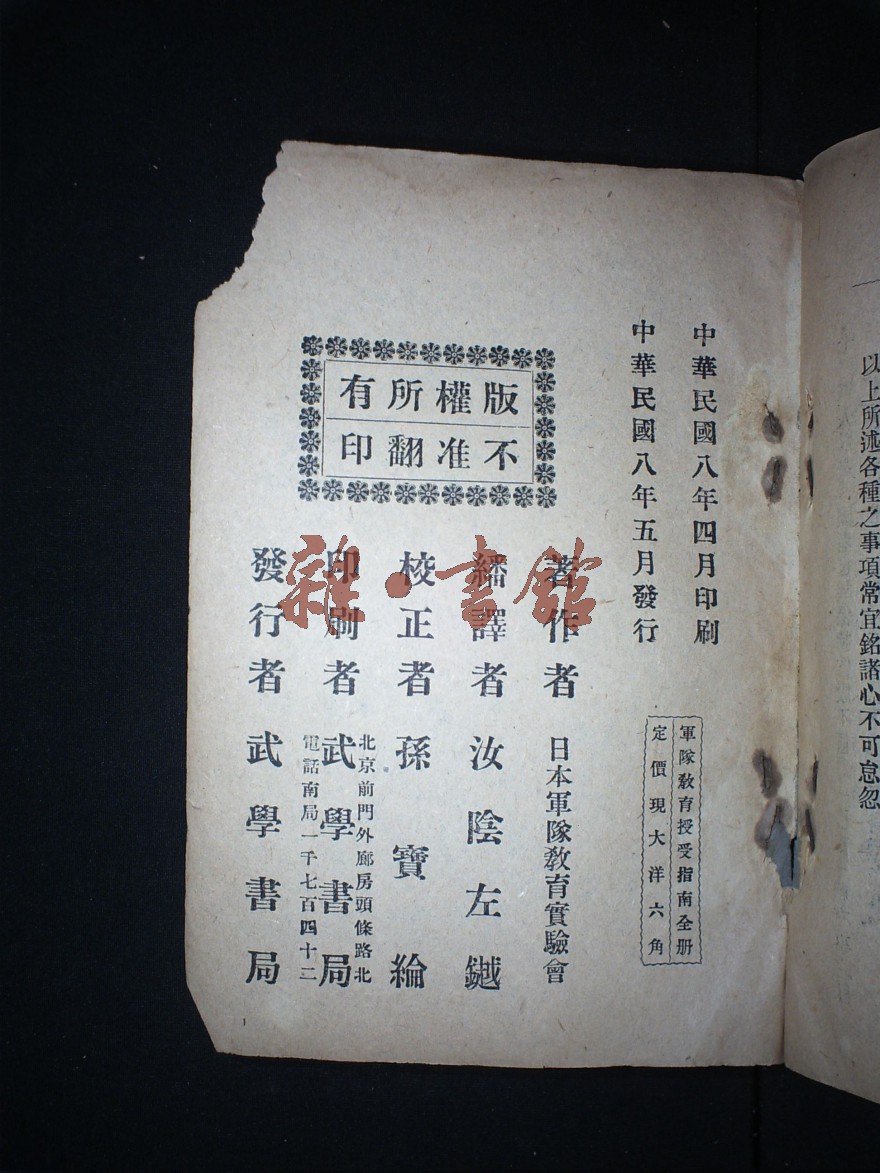 以上所述各種之事項常宜銘諸心不可怠忽
中華民國八年四月印刷
中華民國八年五月發行
軍隊敎育授受指南全册
定價現大洋六角
版權所有
不准翻印
著作者 日本軍隊敎育實驗會
繙譯者 汝陰左鉞
校正者 孫寶綸
印刷者 武學書局
北京前門外廊房頭條路北
電話南局一千七百四十二
發行者 武學書局
雜·書館